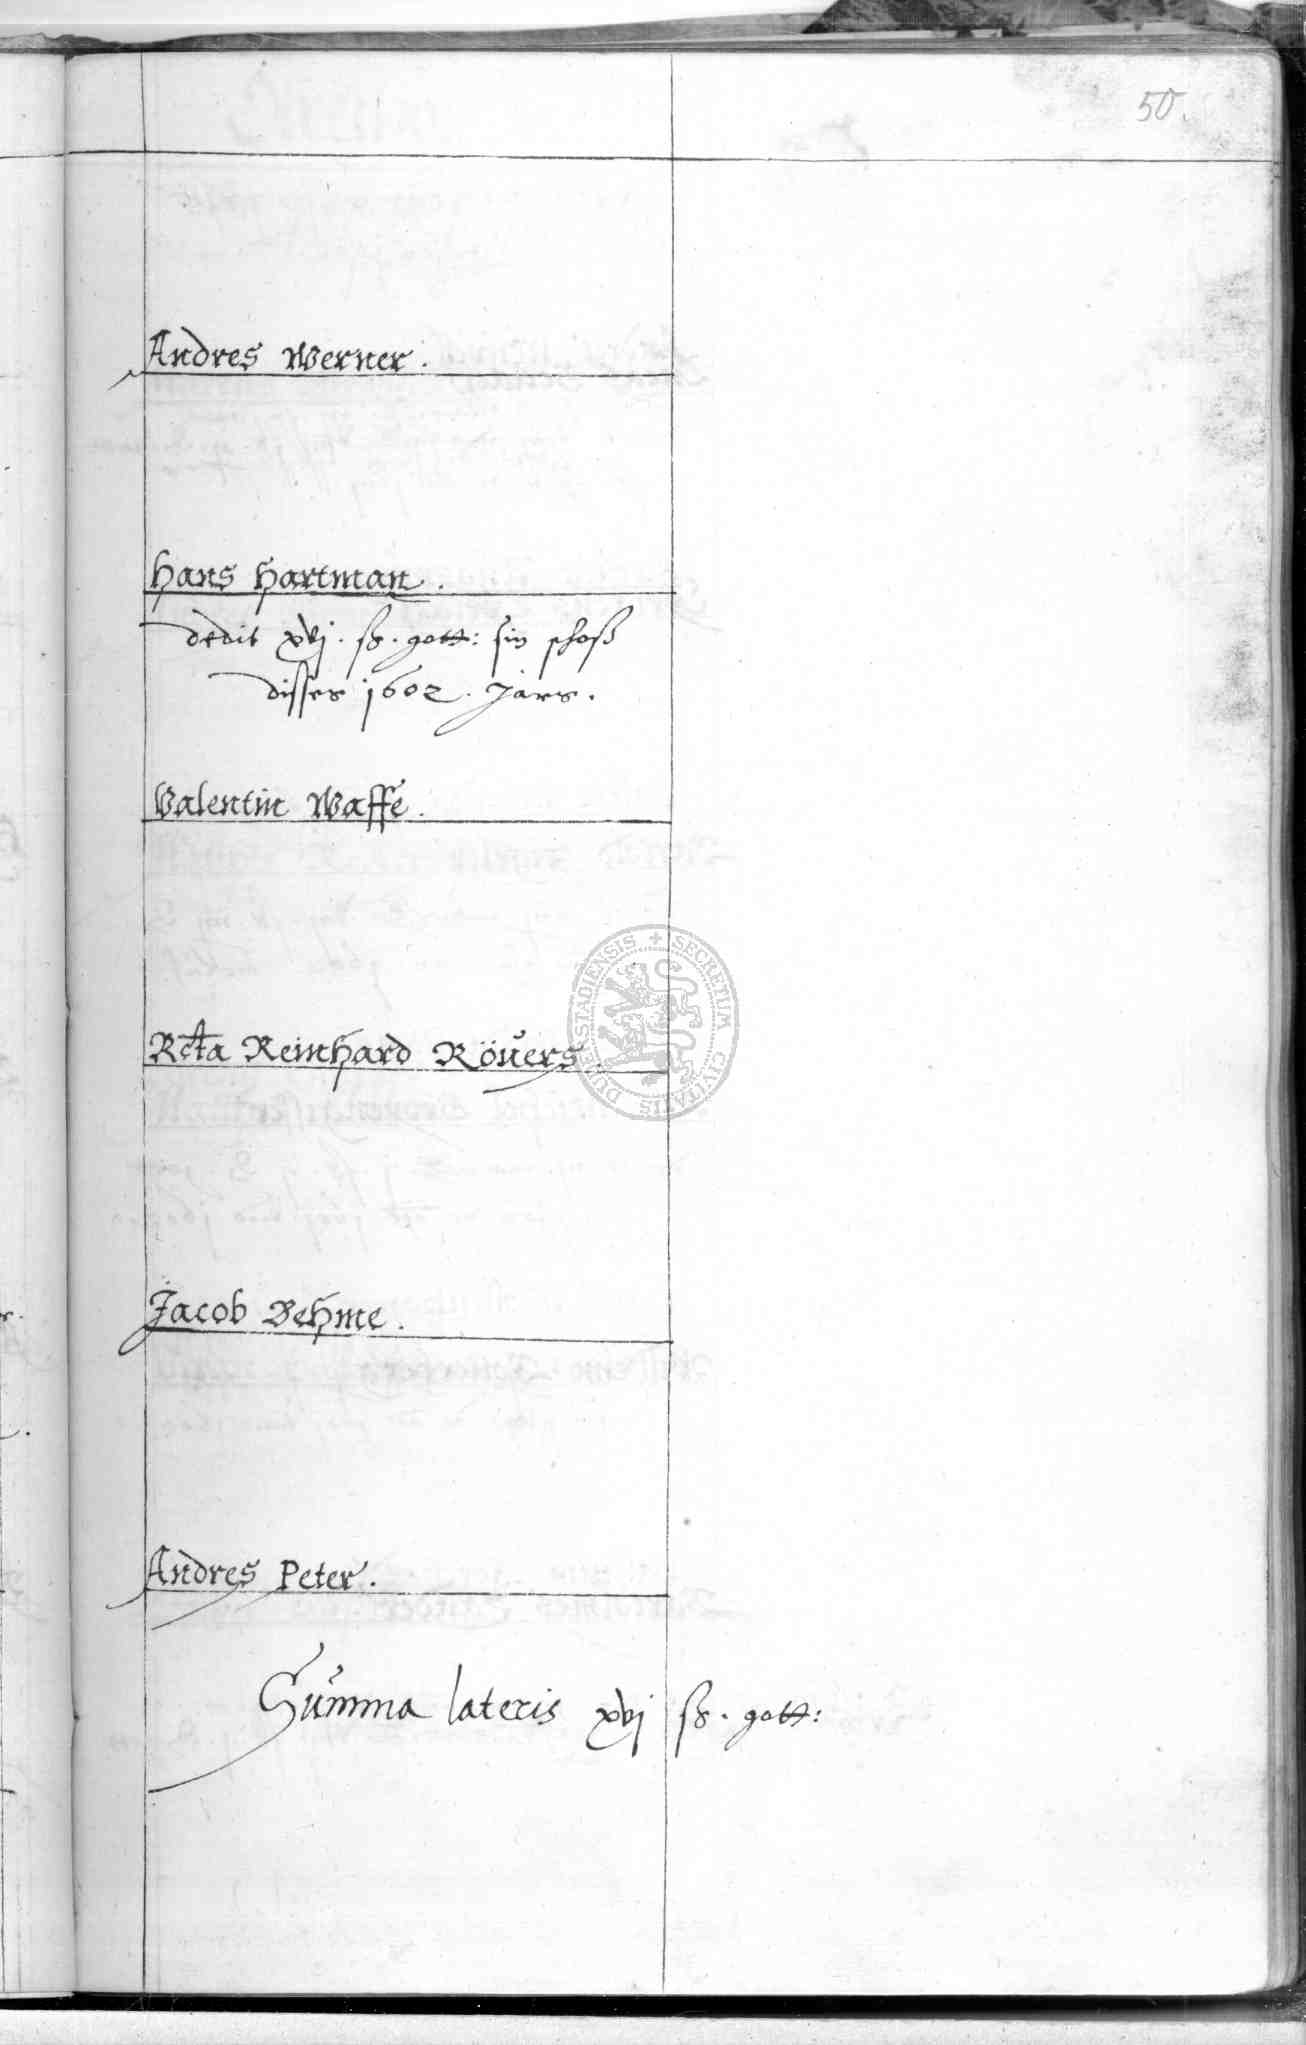 50.
Andres Werner.
Hans Hartman.
dedit xvj. ß. gott: sin schoß
disses 1602. Jars.
Valentin Waffe.
DUDERSTADIENSIS + SECRETUM CIVITATIS
Relicta Reinhard Röuers.
Jacob Behme.
Andres Peter.
Summa lateris xvj ß. gott: